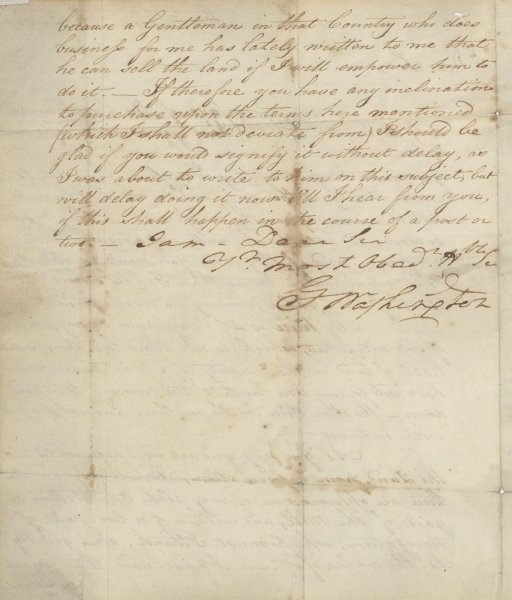 because a Gentleman in that Country who does
business for me has lately written to me that
he can sell the land if I will empower him to
do it. — If therefore you have any inclination
to purchase upon the terms here mentioned
(which I shall not deviate from) I should be
glad if you would signify it without delay, as
I was about to write to him on this subject, but
will delay doing it now till I hear from you,
if this shall happen in the course of a post or
two. — I am – Dear Sir
Yr Most Obedt
GWashington